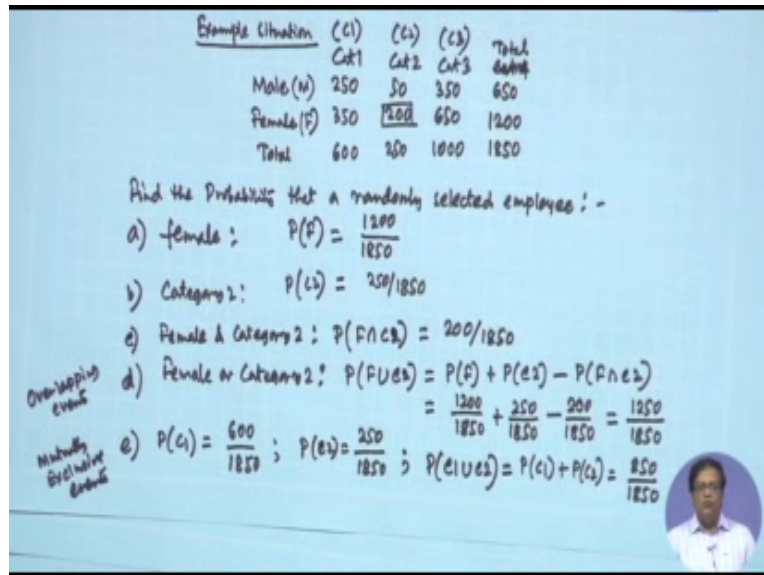 Example Situation (C1) (C2) (C3) Total
Cat1 Cat2 Cat3
Male(M) 250 50 350 650
Female(F) 350 200 650 1200
Total 600 250 1000 1850
Find the Probability that a randomly selected employee: -
a) female: P(F) = 1200/1850
b) Category2: P(C2) = 250/1850
c) Female & Category2: P(F∩C2) = 200/1850
Overlapping events d) Female or Category2: P(F∪C2) = P(F) + P(C2) − P(F∩C2)
= 1200/1850 + 250/1850 − 200/1850 = 1250/1850
Mutually Exclusive events e) P(C1) = 600/1850 ; P(C2) = 250/1850 ; P(C1∪C2) = P(C1) + P(C2) = 850/1850